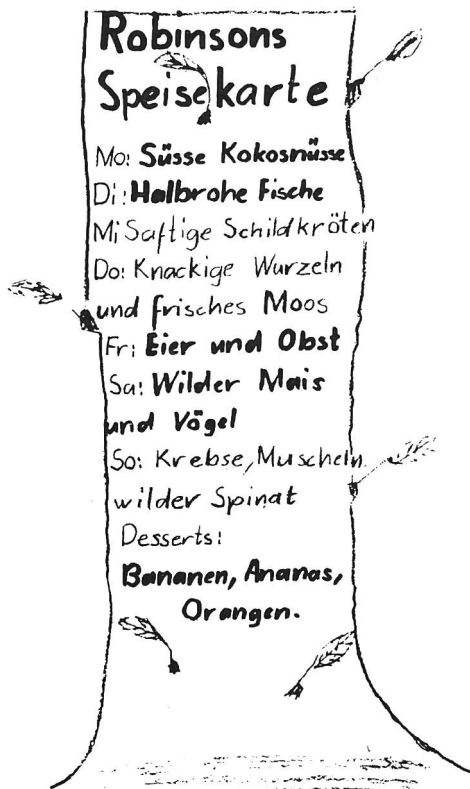 Robinsons
Speisekarte
Mo: Süsse Kokosnüsse
Di: Halbrohe Fische
Mi Saftige Schildkröten
Do: Knackige Wurzeln
und frisches Moos
Fr: Eier und Obst
Sa: Wilder Mais
und Vögel
So: Krebse, Muscheln
wilder Spinat
Desserts:
Bananen, Ananas,
Orangen.